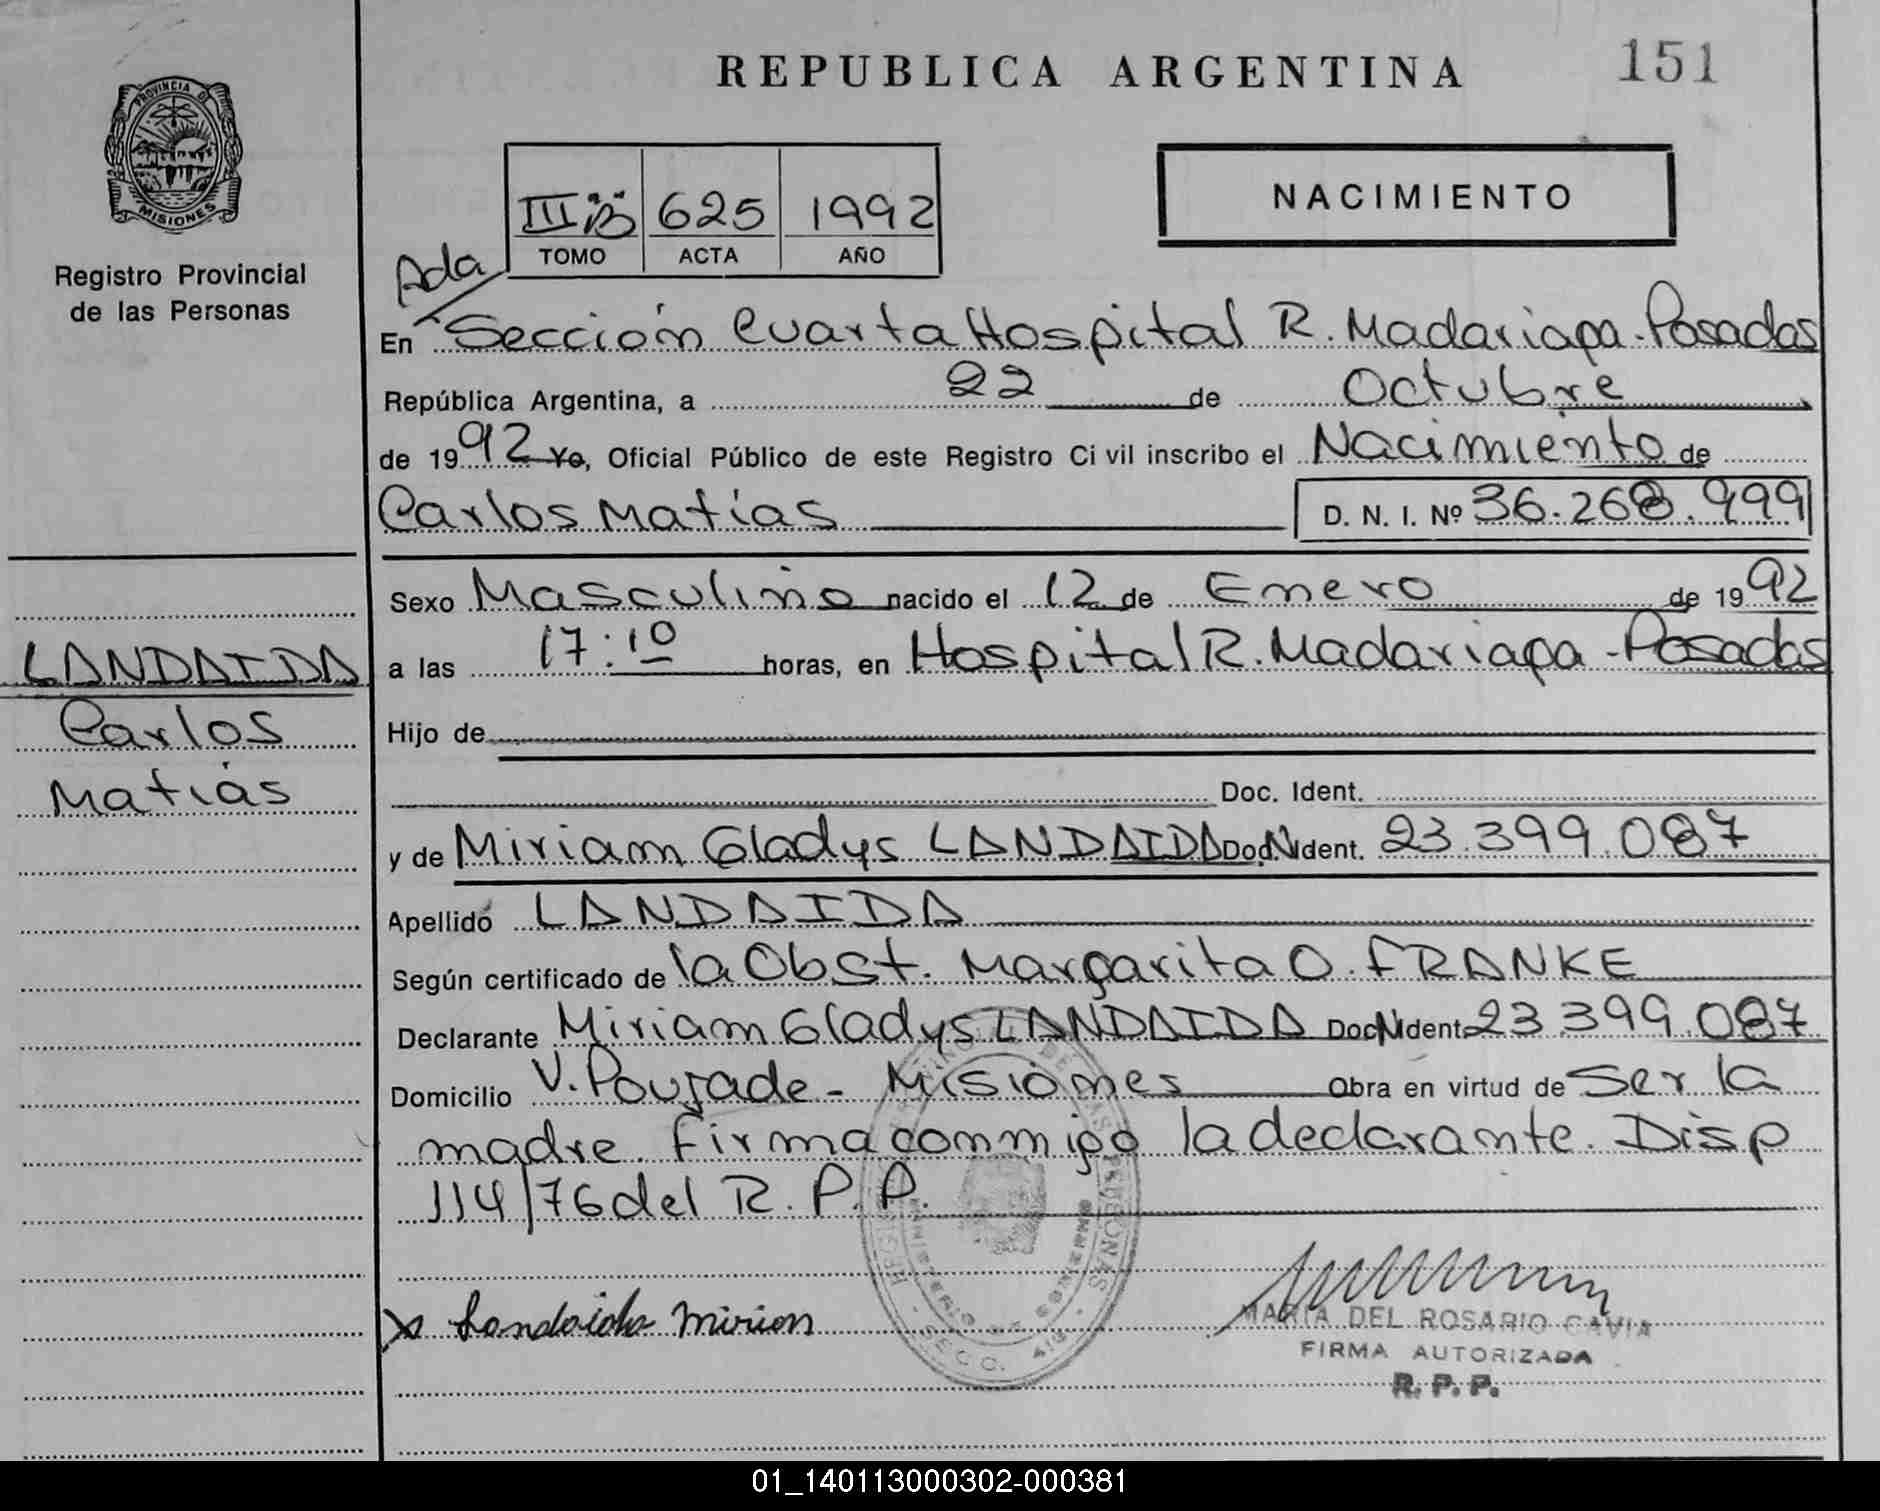 REPUBLICA ARGENTINA
151
PROVINCIA DE
MISIONES
Registro Provincial
de las Personas
III B 625 1992
TOMO ACTA AÑO
NACIMIENTO
Ada
En Sección Cuarta Hospital R. Madariaga-Posadas
República Argentina, a 22 de Octubre
de 1992 Yo, Oficial Público de este Registro Civil inscribo el Nacimiento de
Carlos Matías D. N. I. Nº 36.268.999
Sexo Masculino nacido el 12 de Enero de 1992
a las 17:10 horas, en Hospital R. Madariaga-Posadas
LANDAIDA
Carlos
Matías
Hijo de
Doc. Ident.
y de Miriam Gladys LANDAIDA Doc. Ident. 23.399.087
Apellido LANDAIDA
Según certificado de la Obst. Margarita O. FRANKE
Declarante Miriam Gladys LANDAIDA Doc. Ident. 23.399.087
Domicilio V. Poujade - Misiones Obra en virtud de Ser la
madre. Firma conmigo la declarante. Disp
114/76 del R.P.P.
x Landaida Miriam
MARIA DEL ROSARIO CAVIA
FIRMA AUTORIZADA
R. P. P.
01_140113000302-000381